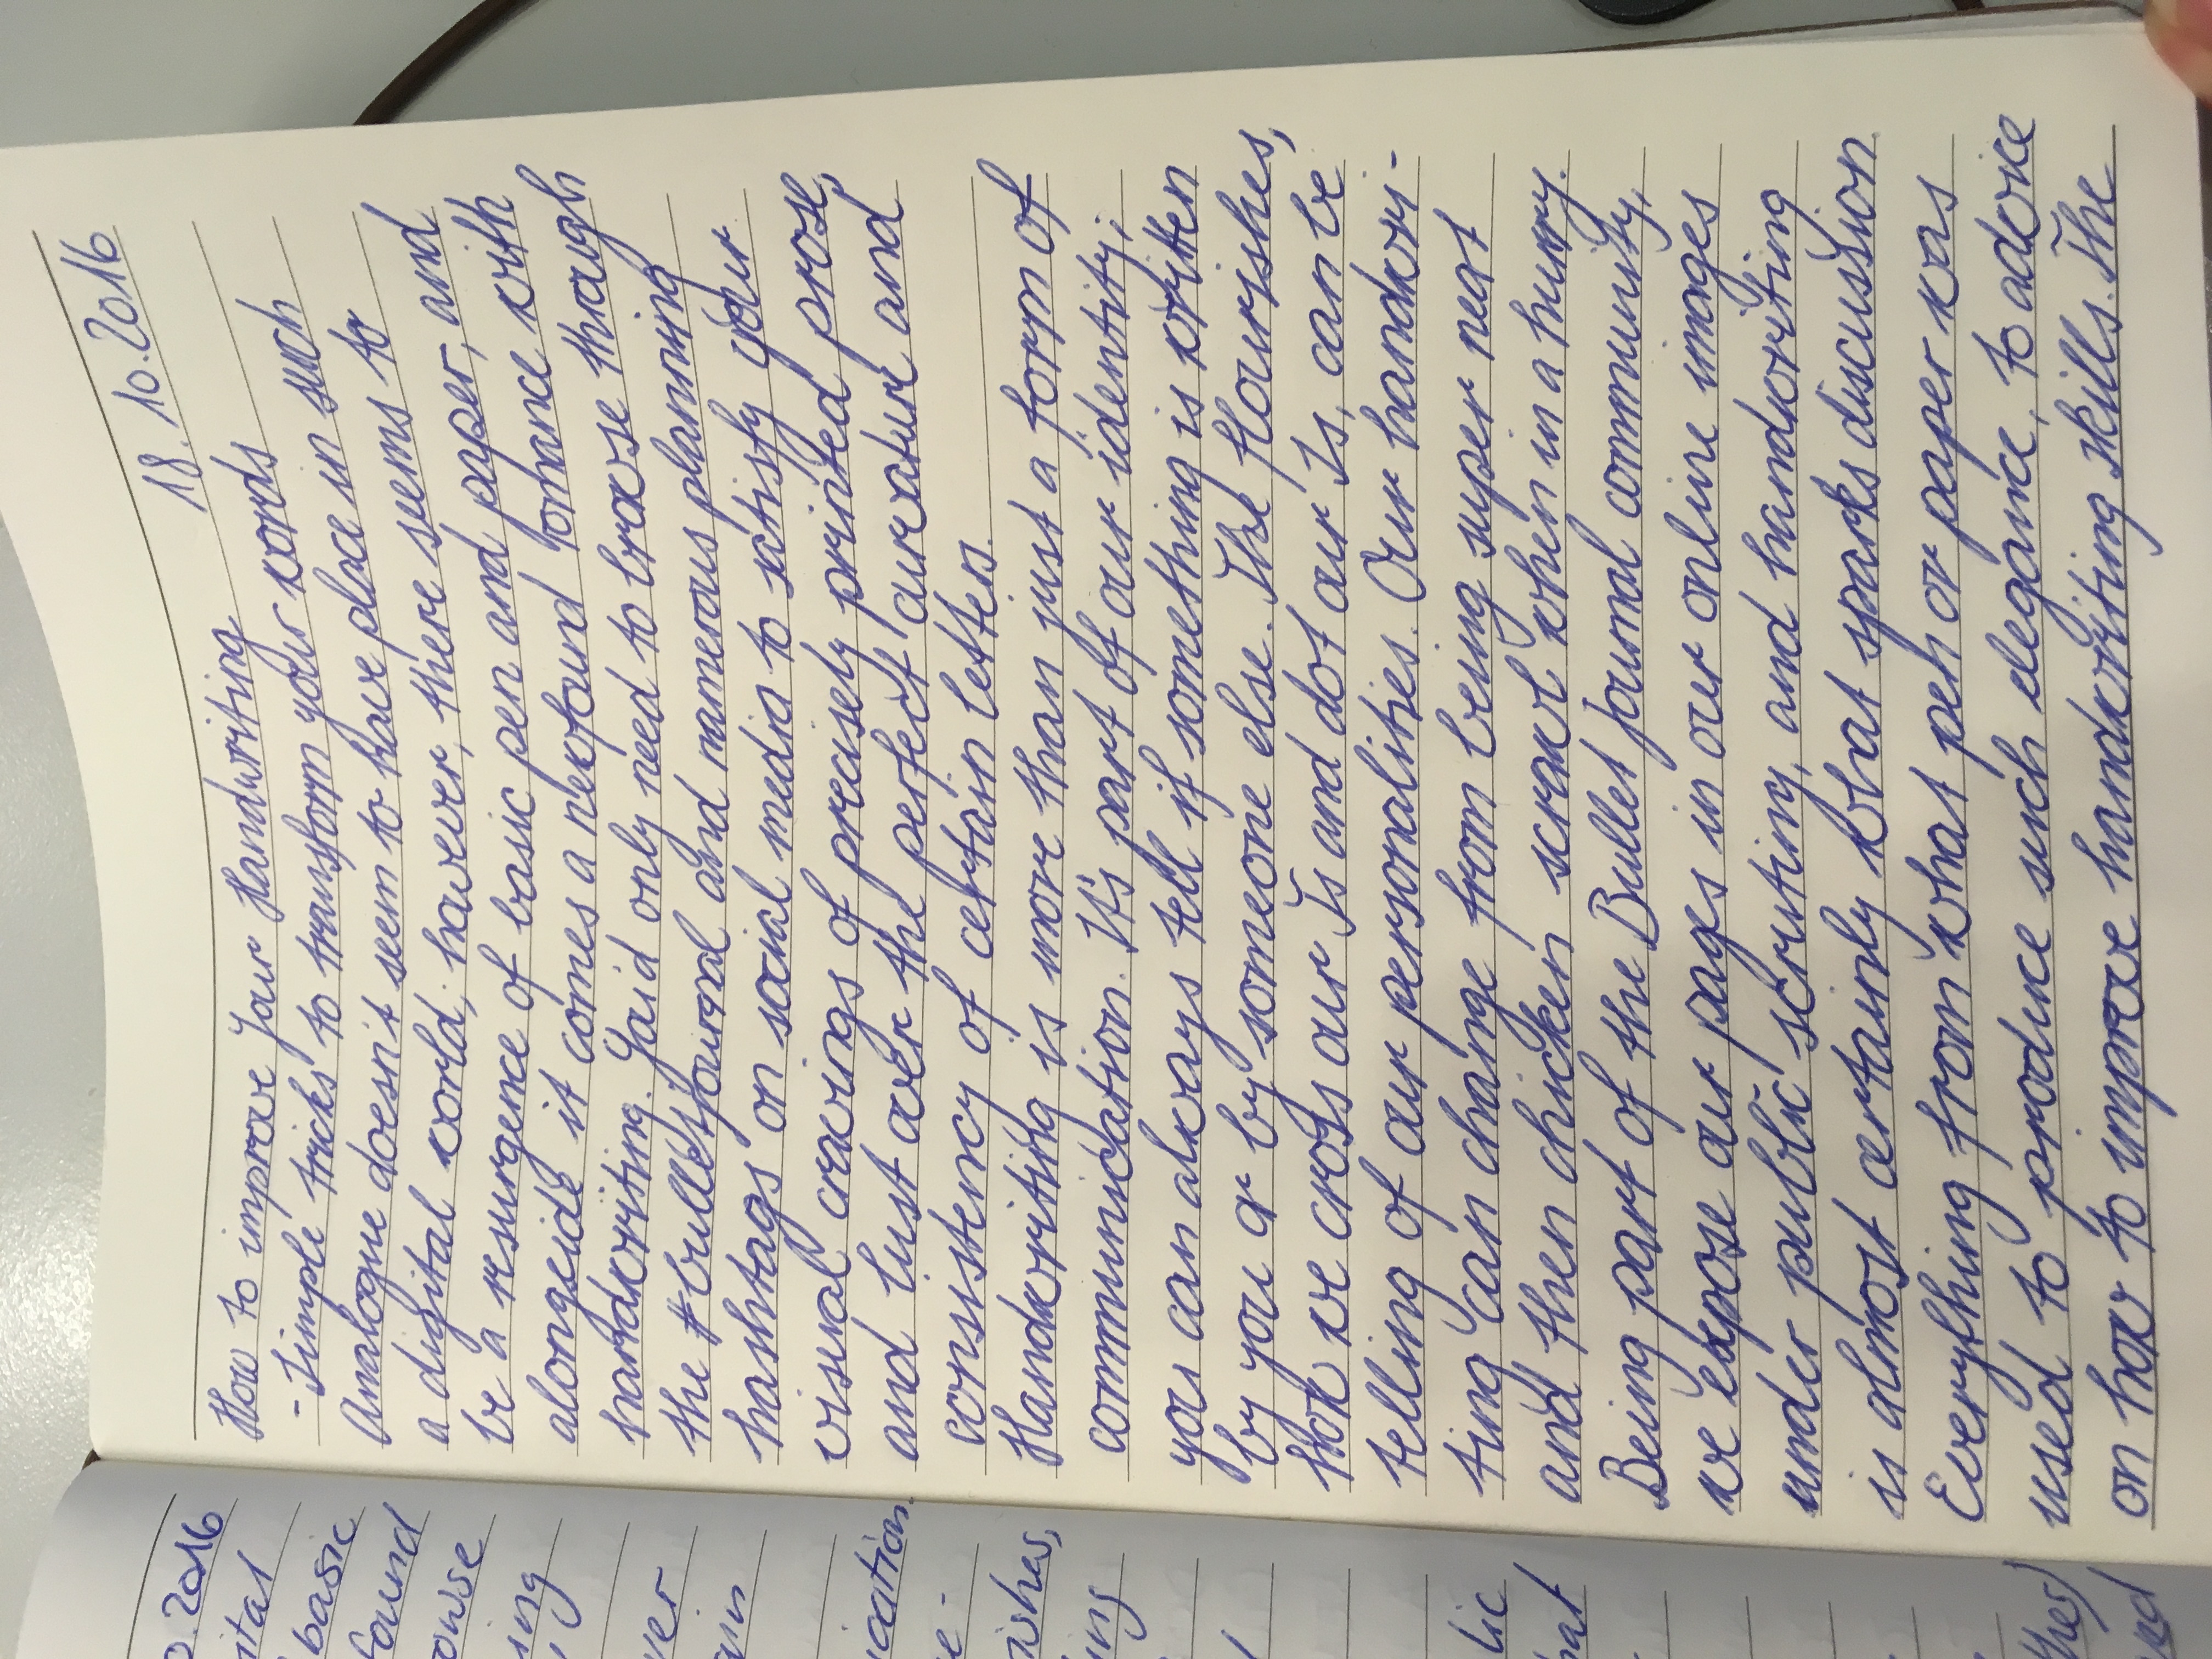 18.10.2016
How to improve Your Handwriting
- Simple tricks to transform your words
Analogue doesn't seem to have place in such
a digital world; however, there seems to
be a resurgence of basic pen and paper, and
alongside it comes a newfound romance with
handwriting. You'd only need to browse through
the #bulletjournal and numerous planning
hashtags on social media to satisfy your
visual cravings of precisely printed prose,
and lust over the perfect curvature and
consistency of certain letters.
Handwriting is more than just a form of
communication. It's part of our identity;
you can always tell if something is written
by you or by someone else. The flourishes,
how we cross our Ts and dot our Is, can be
telling of our personalities. Our handwri-
ting can change from being super neat
and then chicken scrawl when in a hurry.
Being part of the Bullet Journal community,
we expose our pages in our online images
under public scrutiny, and handwriting
is almost certainly what sparks discussion.
Everything from what pen or paper was
used to produce such elegance, to advice
on how to improve handwriting skills. The
2016
basic
found